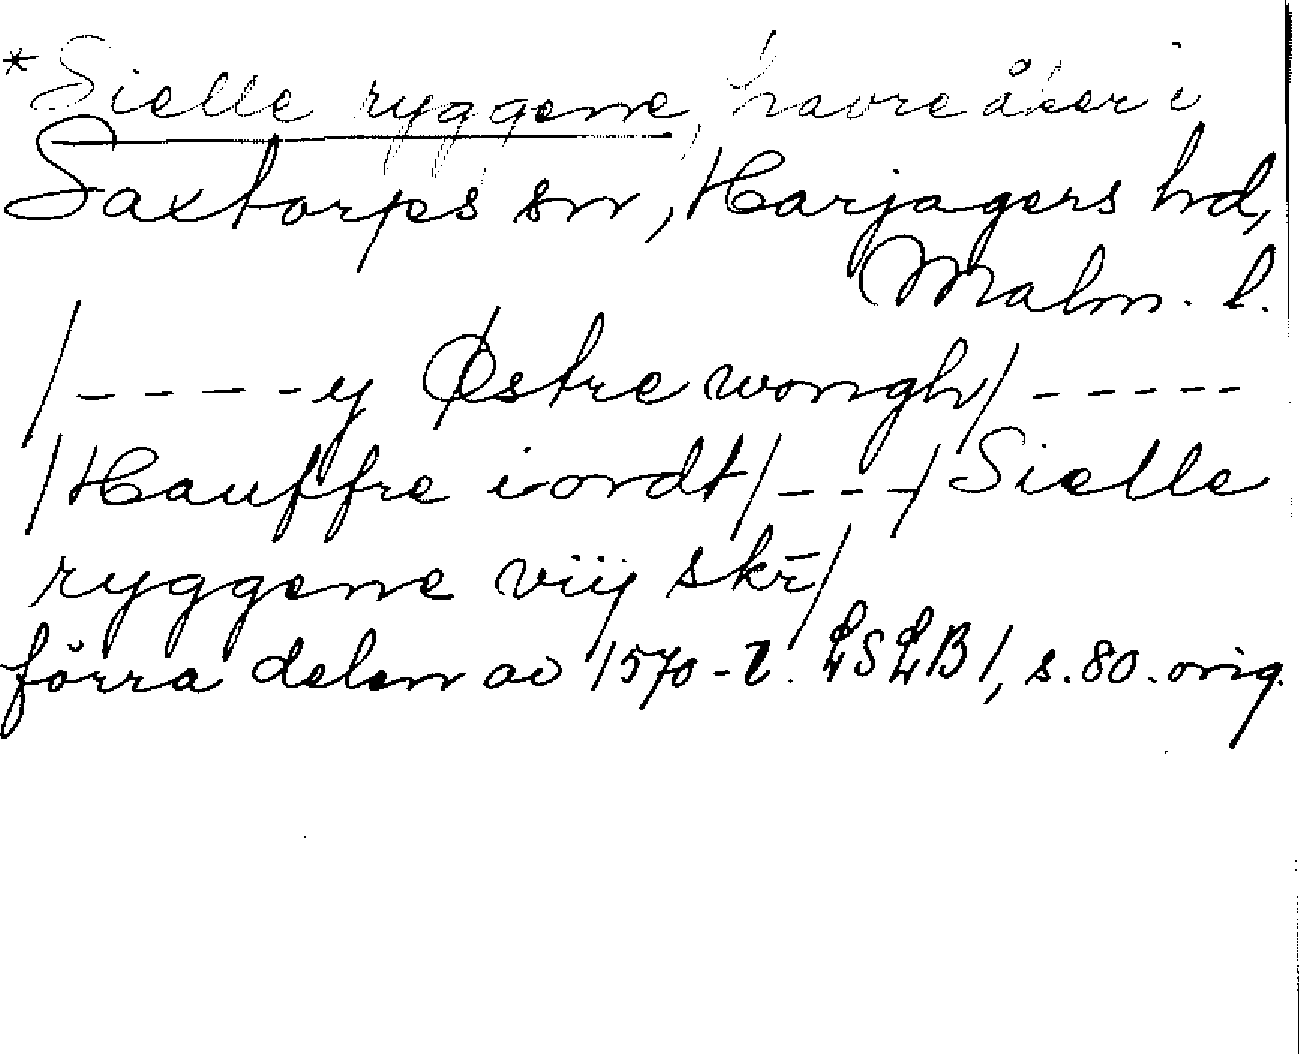 *Sielle ryggene, havreåker i
Saxtorps sn, Harjagers hd,
Malm. l.
/-----y Østre wongh/-----
/Hauffre iordt/---/Sielle
ryggene viij skr̄/
förra delen av 1570-t. LSLB 1, s. 80. orig.